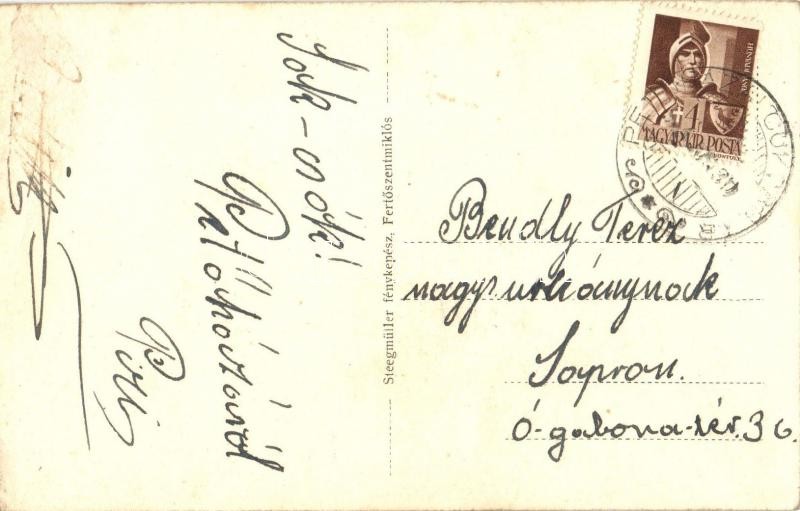 Sok-csók!
Petőházáról
Piri
Steegmüller fényképész, Fertőszentmiklós
HUNYADI JÁNOS
4
MAGYAR KIR. POSTA
Bendly Teréz
nagysurleánynak
Sopron.
Ó-gabona-tér. 36.